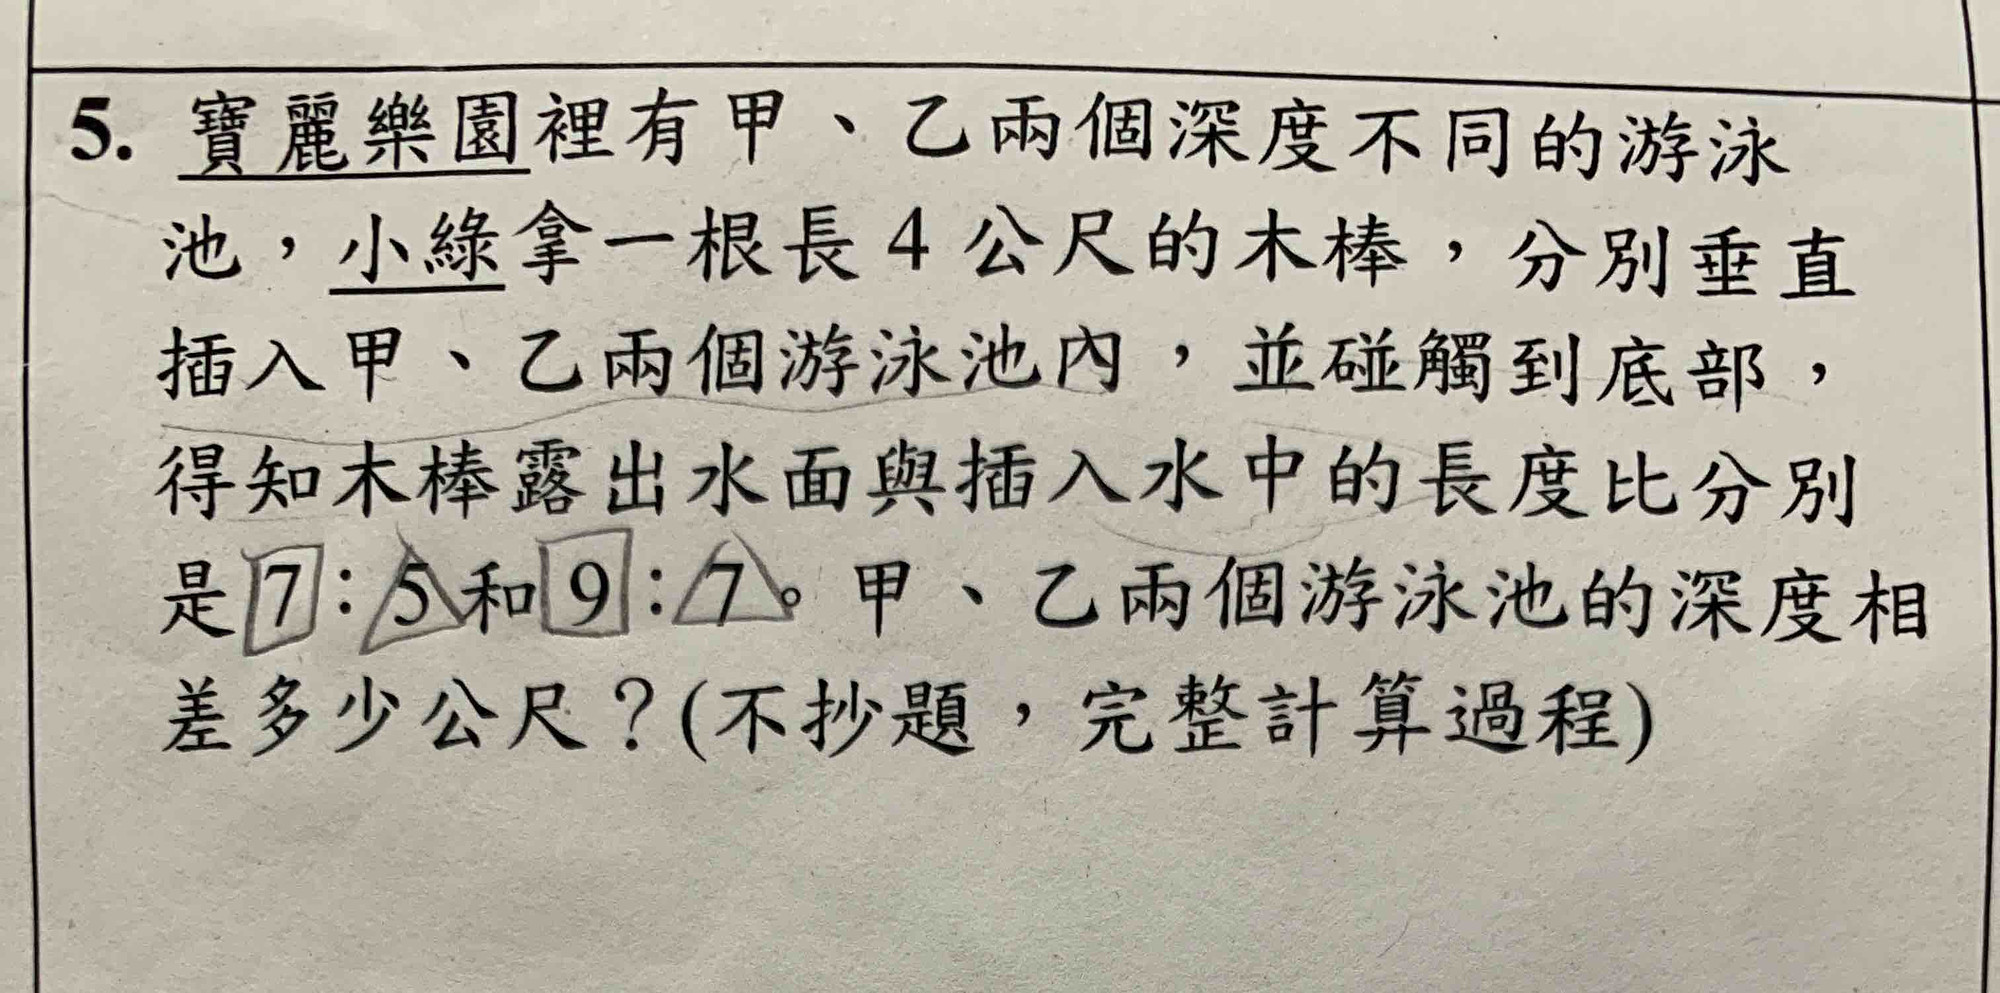 5. 寶麗樂園裡有甲、乙兩個深度不同的游泳
池，小綠拿一根長 4 公尺的木棒，分別垂直
插入甲、乙兩個游泳池內，並碰觸到底部，
得知木棒露出水面與插入水中的長度比分別
是 7：5 和 9：7。甲、乙兩個游泳池的深度相
差多少公尺？(不抄題，完整計算過程)